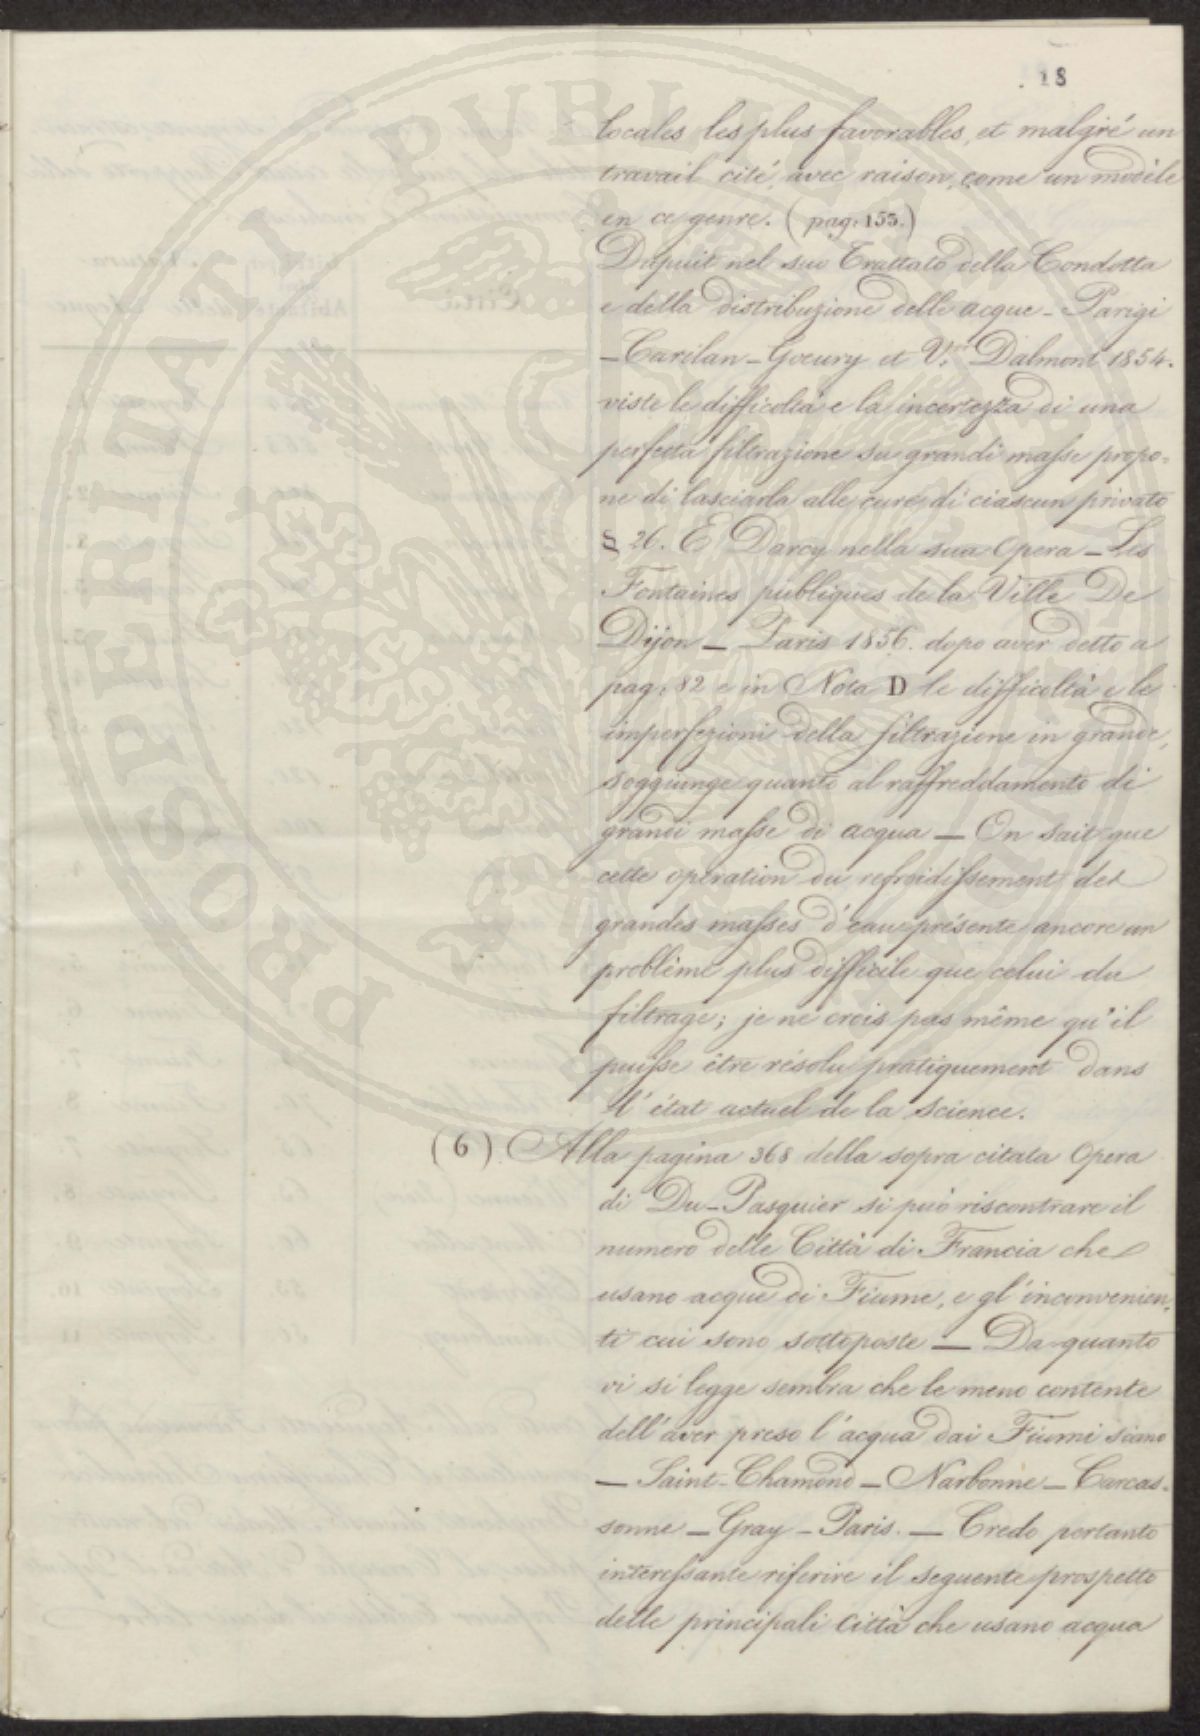 18
locales les plus favorables, et malgré un
travail cité, avec raison, come un modèle
en ce genre. (pag: 155.)
Dupuit nel suo Trattato della Condotta
e della distribuzione delle acque - Parigi
- Carilan - Goeury et V.or Dalmont 1854.
viste le difficoltà e la incertezza di una
perfetta filtrazione su grandi masse propo-
ne di lasciarla alle cure di ciascun privato
§ 26. E Darcy nella sua Opera - Les
Fontaines publiques de la Ville De
Dijon - Paris 1856. dopo aver detto a
pag: 82 e in Nota D le difficoltà e le
imperfezioni della filtrazione in grande,
soggiunge quanto al raffreddamento di
grandi masse di acqua - On sait que
cette opération du refroidissement des
grandes masses d'eau présente ancore un
problême plus difficile que celui du
filtrage; je ne crois pas même qu'il
puisse être résolu pratiquement dans
l'état actuel de la science.
(6) Alla pagina 368 della sopra citata Opera
di Du-Pasquier si può riscontrare il
numero delle Città di Francia che
usano acque di Fiume, e gl'inconvenien-
ti cui sono sottoposte - Da quanto
vi si legge sembra che le meno contente
dell'aver preso l'acqua dai Fiumi siano
- Saint-Chamond - Narbonne - Carcas-
sonne - Gray - Paris. - Credo pertanto
interessante riferire il seguente prospetto
delle principali Città che usano acqua
PROSPERITATI PVBLICAE